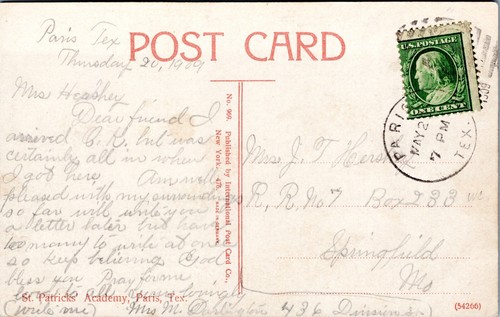 Paris Tex
Thursday 20, 1909
POST CARD
U.S. POSTAGE
ONE CENT
PARIS
MAY 2
7 PM
TEX.
1909
Mrs Hershey
Dear friend I
arrived O.K. but was
certainly all in when
I got here. Am well
pleased with my surroundings
so far will write you
a letter later but have
too many to write at once
so keep believing God
bless you Pray for me
love to all Yours lovingly
(write me) Mrs M. Darlington 436 Division St
No. 969. Published by International Post Card Co.,
New York.
MADE IN GERMANY
Mrs J. T. Hershey
R. R. No 7 Box 233
Springfield
Mo
St. Patricks' Academy, Paris, Tex.
(54266)